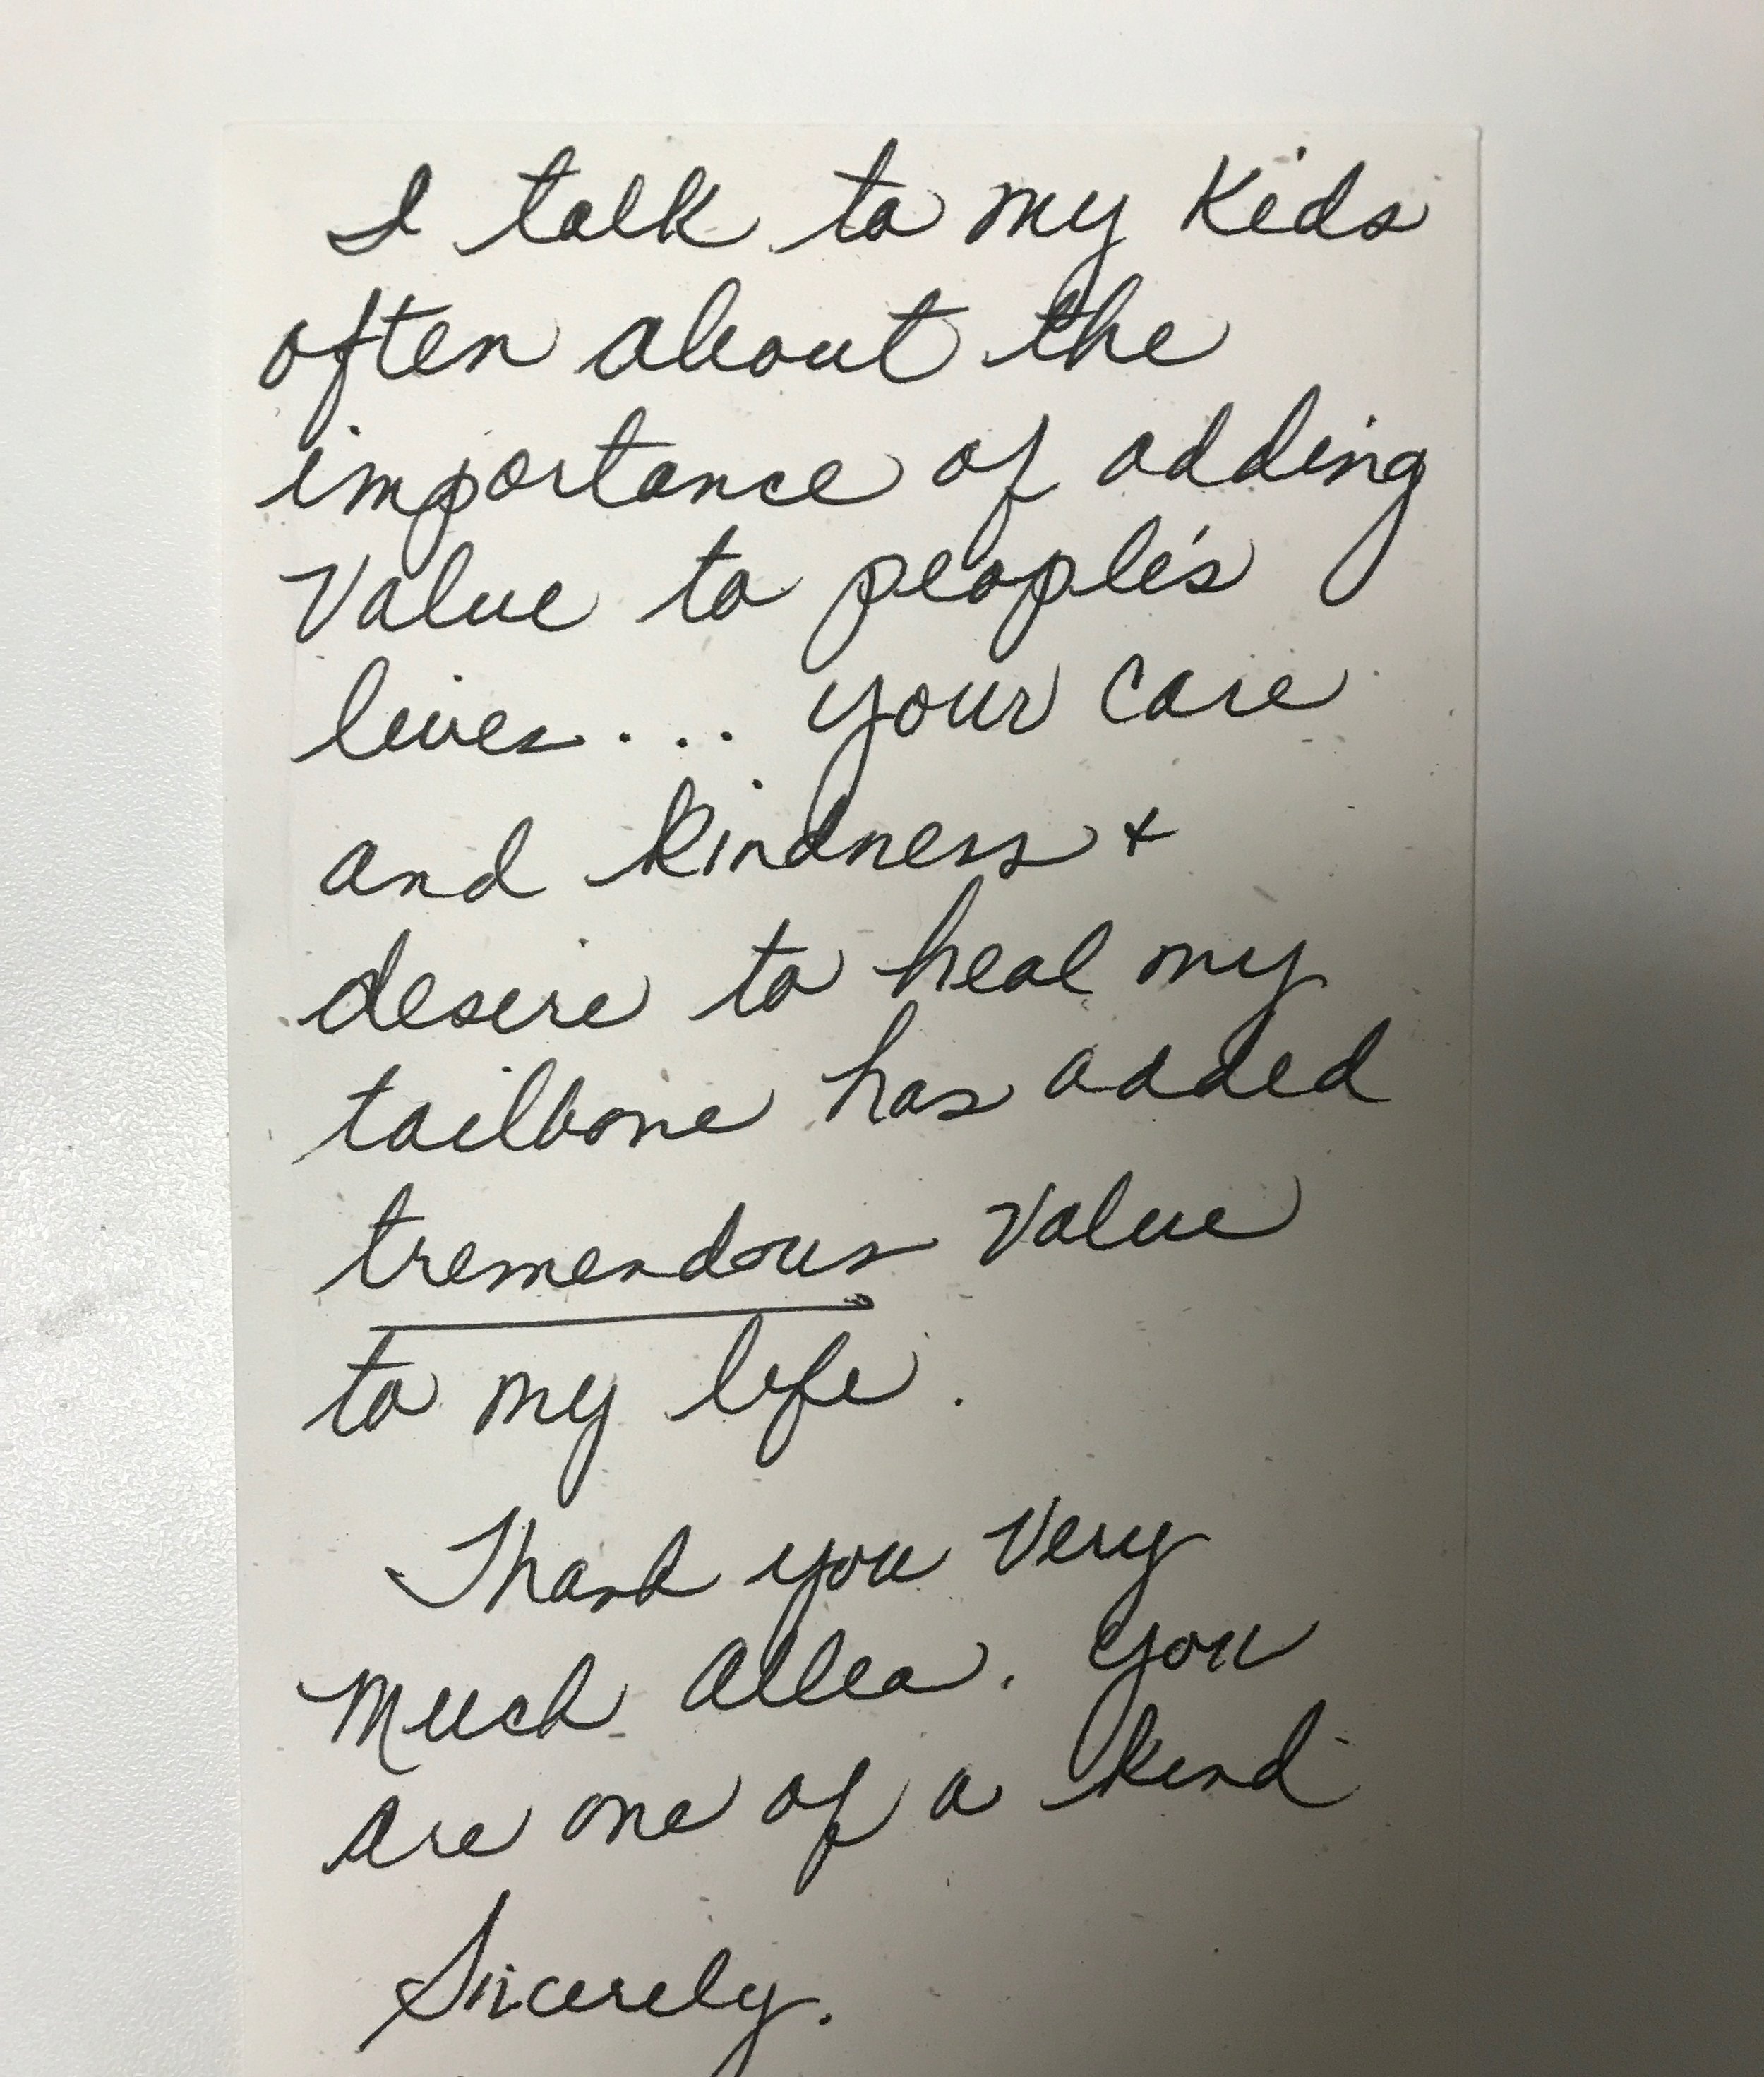 I talk to my kids
often about the
importance of adding
value to people's
lives... your care
and kindness +
desire to heal my
tailbone has added
tremendous value
to my life.
Thank you very
much Allea. You
are one of a kind
Sincerely.